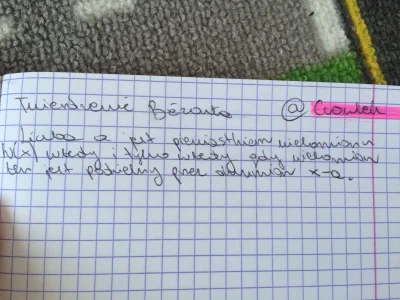 Twierdzenie Bézouta @ Czowiek
Liczba a jest pierwiastkiem wielomianu
W(x) wtedy i tylko wtedy gdy wielomian
ten jest podzielny przez dwumian x-a.